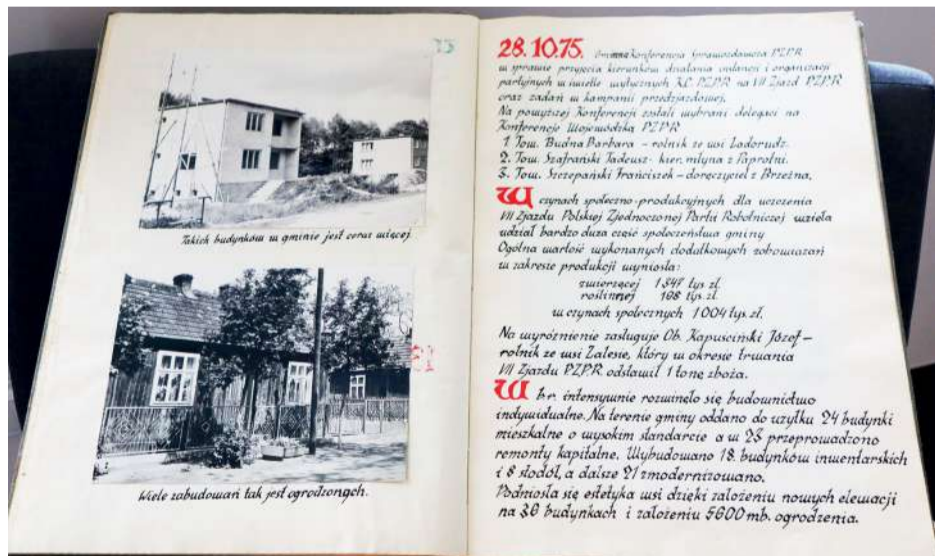 Takich budynków w gminie jest coraz więcej.
Wiele zabudowań tak jest ogrodzonych.
28.10.75. Gminna Konferencja Sprawozdawcza PZPR
w sprawie przyjęcia kierunków działania instancji i organizacji
partyjnych w świetle wytycznych KC PZPR na VII Zjazd PZPR
oraz zadań w kampanii przedzjazdowej.
Na powyższej Konferencji zostali wybrani delegaci na
Konferencję Wojewódzką PZPR
1. Tow. Budna Barbara - rolnik ze wsi Ladorudz.
2. Tow. Szafrański Tadeusz - kier. młyna z Paprotni.
3. Tow. Szczepański Franciszek - doręczyciel z Brzeźna.
W czynach społeczno-produkcyjnych dla uczczenia
VII Zjazdu Polskiej Zjednoczonej Partii Robotniczej wzięła
udział bardzo duża część społeczeństwa gminy
Ogólna wartość wykonanych dodatkowych zobowiązań
w zakresie produkcji wyniosła:
zwierzęcej 1 847 tys. zł.
roślinnej 198 tys. zł.
w czynach społecznych 1 004 tys. zł.
Na wyróżnienie zasługuje Ob. Kapuściński Józef -
rolnik ze wsi Zalesie, który w okresie trwania
VII Zjazdu PZPR odstawił 1 tonę zboża.
W br. intensywnie rozwinęło się budownictwo
indywidualne. Na terenie gminy oddano do użytku 24 budynki
mieszkalne o wysokim standarcie a w 23 przeprowadzono
remonty kapitalne. Wybudowano 18. budynków inwentarskich
i 8 stodół, a dalsze 21 zmodernizowano.
Podniosła się estetyka wsi dzięki założeniu nowych elewacji
na 36 budynkach i założeniu 5600 mb. ogrodzenia.